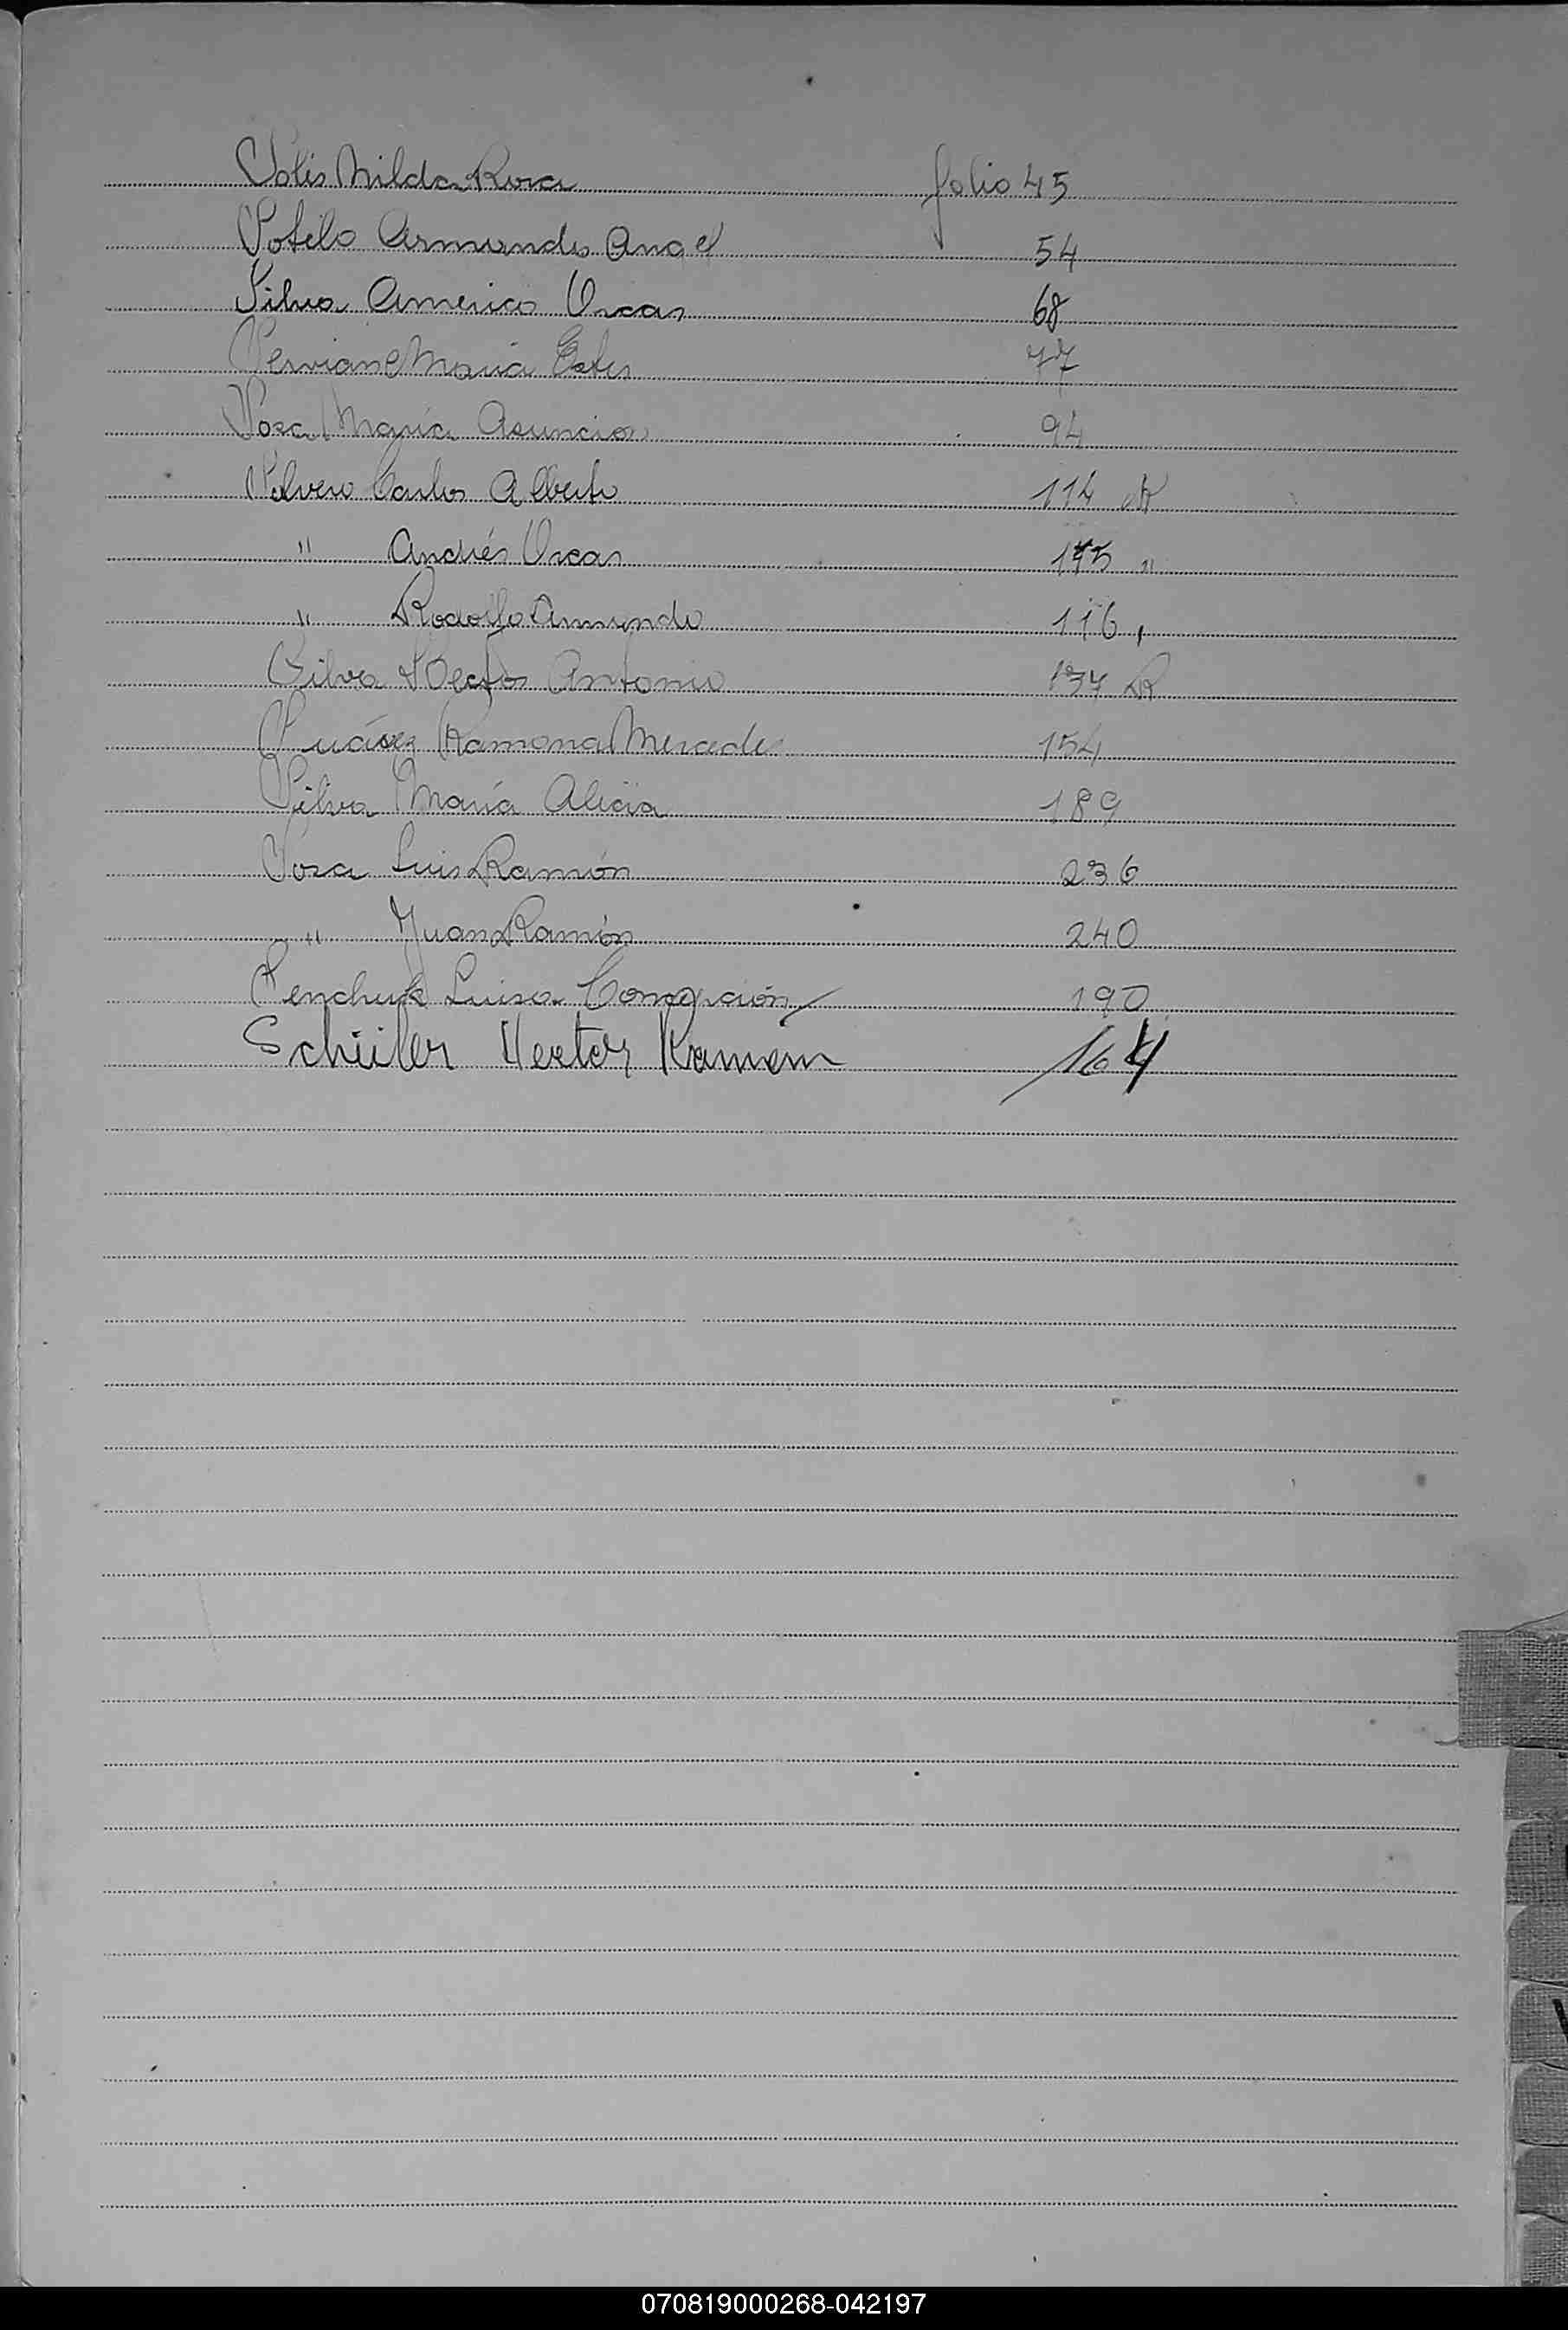 Solis Nilda Rosa folio 45
Sotelo Armando Angel 54
Silva Americo Oscar 68
Serviane María Ester 77
Sosa María Asuncion 94
Silvero Carlos Alberto 114 R
" Andrés Oscar 115 "
" Rodolfo Armando 116 "
Silva Hector Antonio 137 R
Suárez Ramona Mercedes 154
Silva María Alicia 189
Sosa Luis Ramón 236
" Juan Ramón 240
Senchuk Luisa Concepción 190
Schüler Hector Ramón 164
070819000268-042197